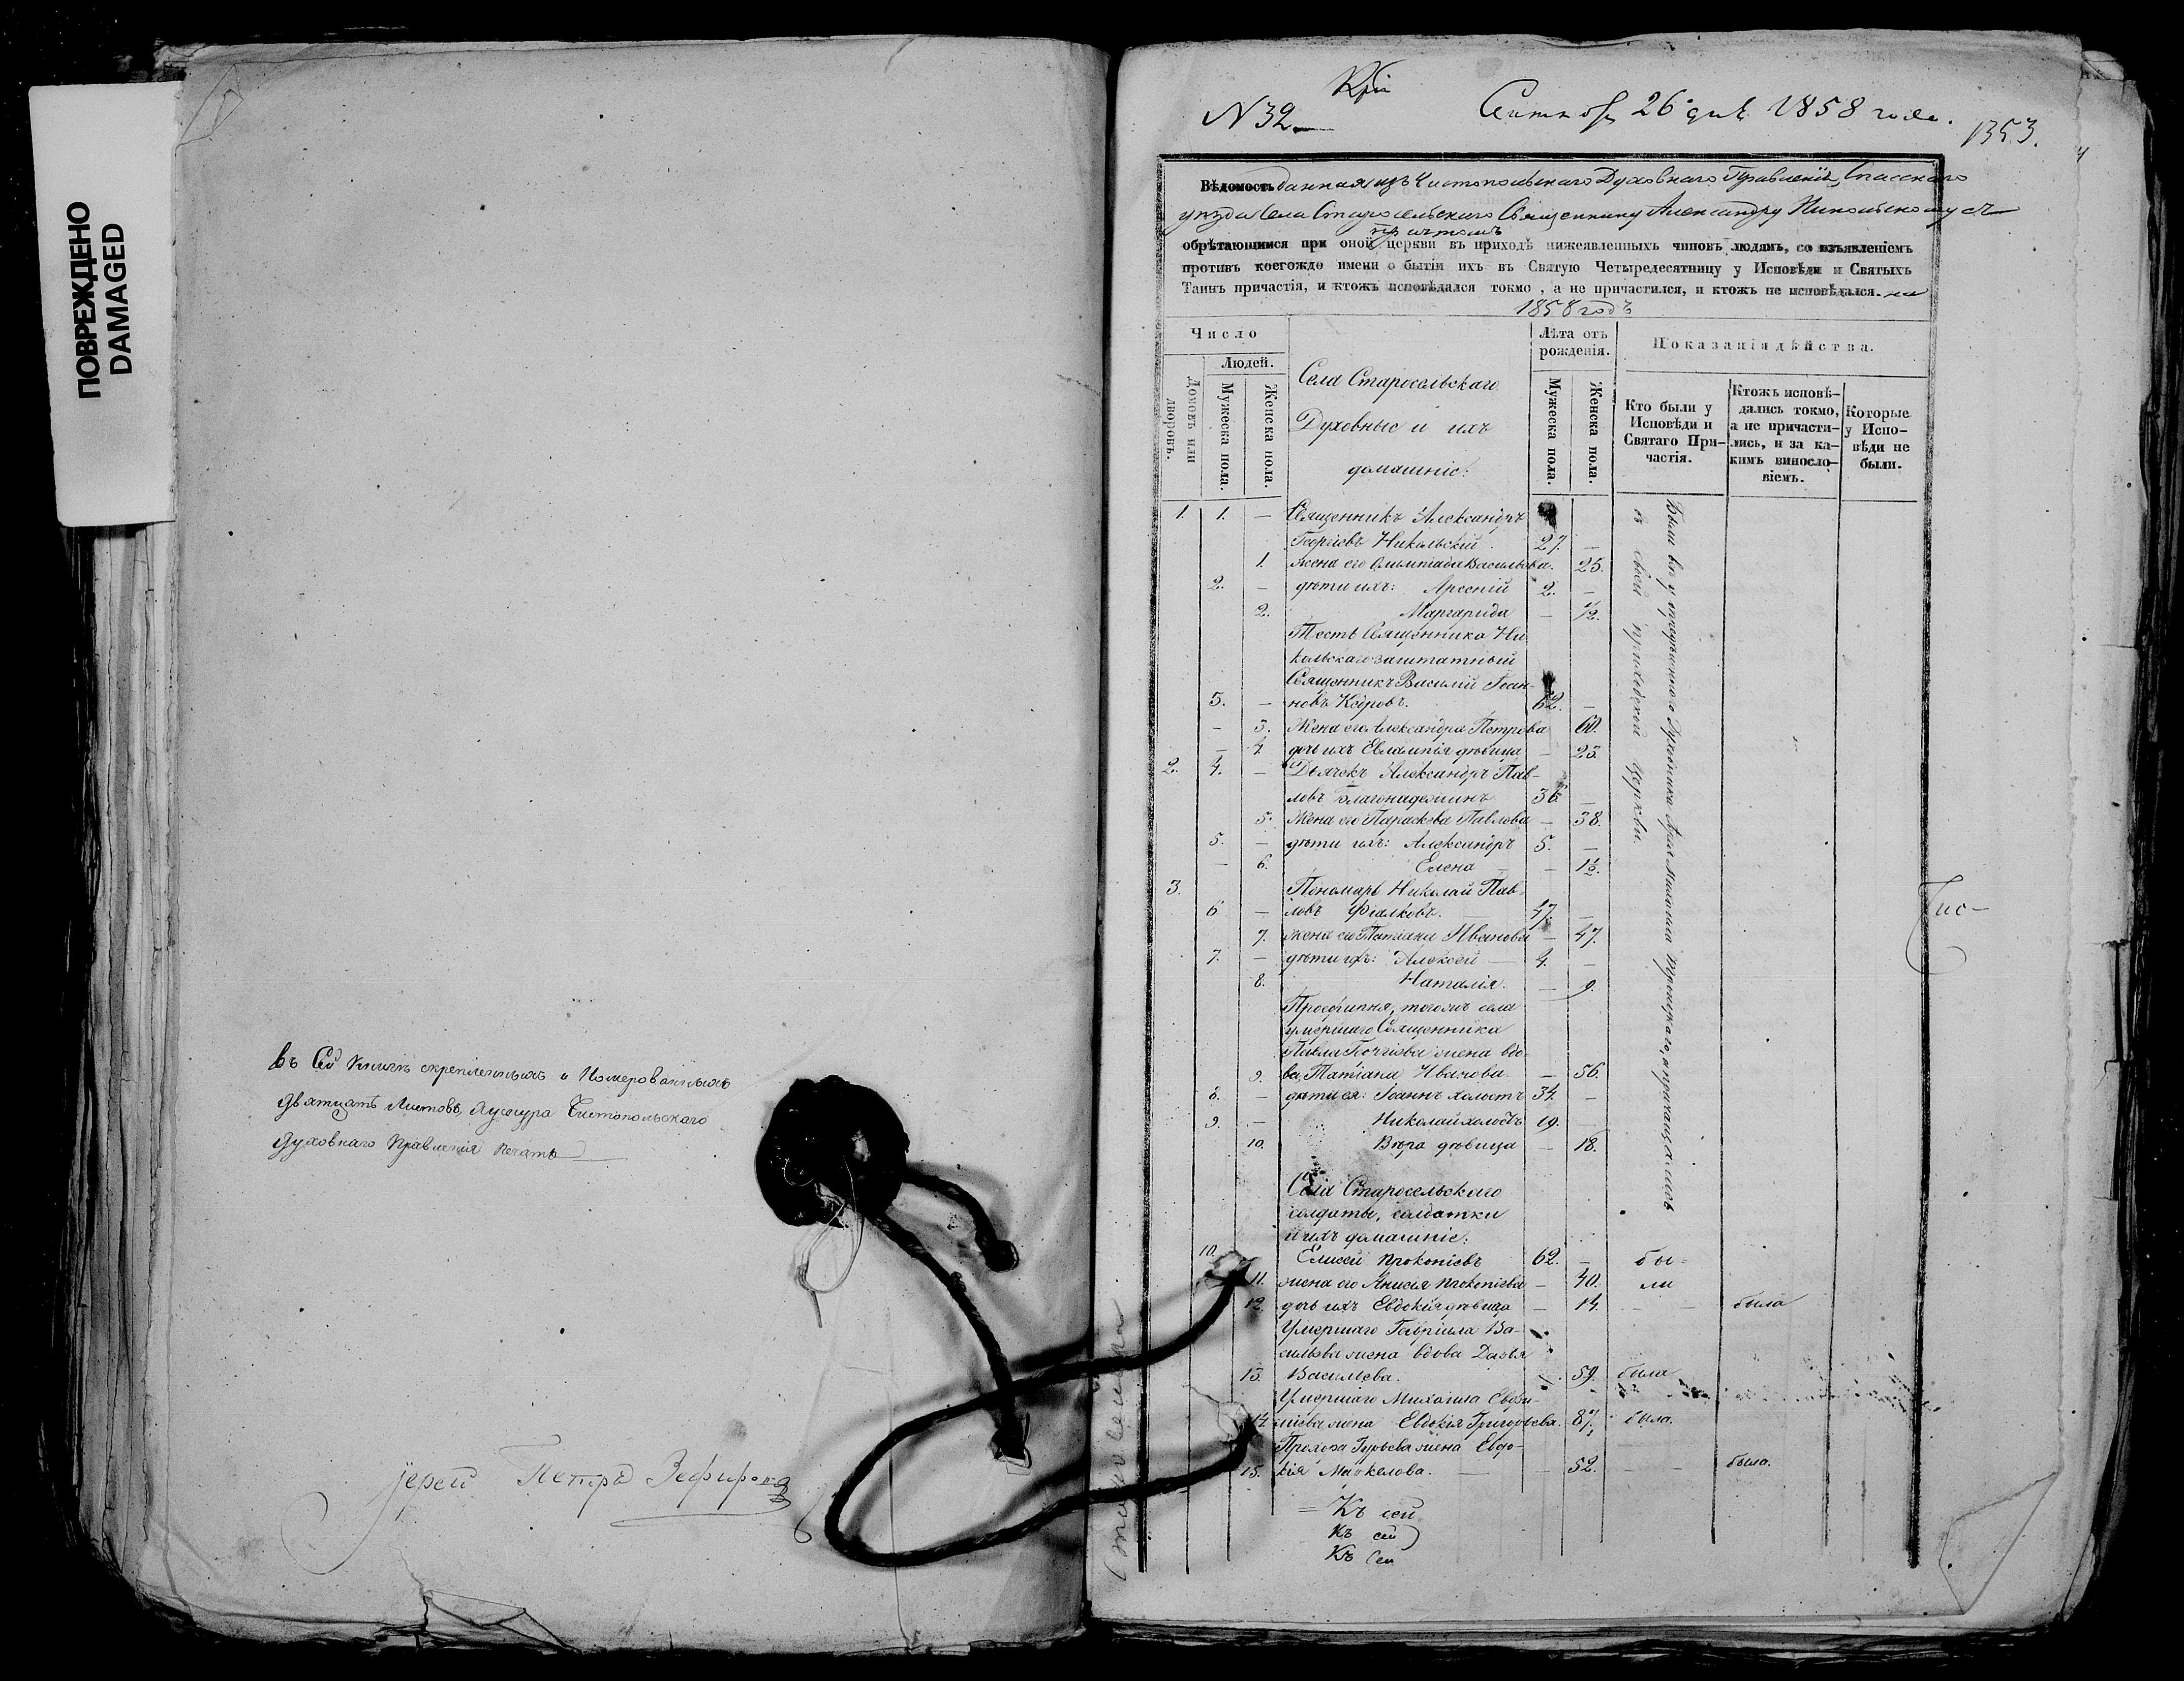 ПОВРЕЖДЕНО
DAMAGED
въ Сей Книгѣ скрепленныхъ и Номерованныхъ
Двятцать Листовъ
Чистопольскаго
Духовнаго Правленія Печать
Іерей Петръ Зефировъ
N 32
26 дня 1858 года.
1353.
Вѣдомость данная изъ Чистопольскаго Духовнаго Правленія, Спасскаго
уѣзда Села Старосельскаго Священнику Александру Никольскому съ
причтомъ
обрѣтающимся при оной церкви въ приходѣ нижеявленныхъ чиновъ людямъ, со изъявленіемъ
противъ коегождо имени о бытіи ихъ въ Святую Четыредесятницу у Исповѣди и Святыхъ
Таинъ причастія, и ктожъ исповѣдался токмо, а не причастился, и ктожъ не исповѣдался. на
1858 годъ
Число
Людей.
Домовъ или дворовъ.
Мужеска пола.
Женска пола.
Села Старосельскаго
Духовные и ихъ
домашніе:
Лѣта отъ
рожденія.
Мужеска пола.
Женска пола.
Показанія дѣйства.
Кто были у
Исповѣди и
Святаго При-
частія.
Ктожъ исповѣ-
дались токмо,
а не причасти-
лись, и за ка-
кимъ винословіемъ.
Которые
у Испо-
вѣди не
были.
1. 1. — Священникъ Александръ
Георгіевъ Никольскій 27. —
1. жена его Олимпіада Васильева. 25.
2. — дѣти ихъ: Арсеній 2. —
2. Маргарида — 1/2.
Тесть Священника Ни
кольскаго заштатный
Священникъ Василій Іоан-
3. — новъ Кедровъ. 62. —
— 3. Жена его Александра Петрова 60.
— 4. дочь ихъ Евлампія дѣвица — 23.
2. 4. — Дьячекъ Александръ Пав-
ловъ Благонадеждинъ 36. —
5. Жена его Параскева Павлова — 38.
5. — дѣти ихъ: Александръ 5. —
— 6. Елена — 1 1/2.
3. Пономарь Николай Пав-
6 — ловъ Фіалковъ. 47. —
7. жена его Татіана Иванова — 47.
7. — дѣти ихъ: Алексей 4. —
8. Наталія. — 9.
Просфирня, тогожъ села
умершаго Священника
Павла жена вдо-
9. ва, Татіана Иванова. — 56.
8. — дѣти ея: Іоаннъ холостъ 34. —
9. — Николай холостъ 19. —
10. Вѣра дѣвица — 18.
Были въ у Духовника
въ своей приходской церкви.
Села Старосельскаго
солдаты, солдатки
и ихъ домашніе:
10. Елисей Прокопіевъ 62. — бы-
11. жена его Анисія Прокопіева — 40. ли
12. дочь ихъ Евдокія дѣвица — 14. — — была
Умершаго Гавріила Ва-
сильева жена вдова Дарья
13. Васильева. — 59. была
Умершаго Михаила
14. жена Евдокія Григорьева. 87. была.
Прохора Гурьева жена Евдо-
15. кія Маркелова. — — 52. — — была.
= Къ сей
Къ сей
Къ Сей
Пис-